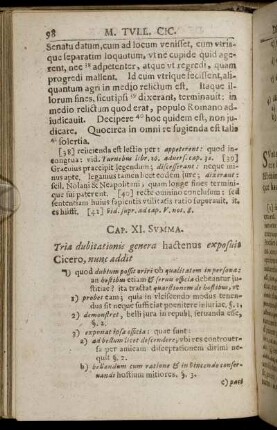 98 M. TVLL. CIC.
Senatu datum, cum ad locum venisset, cum vtris-
que separatim loquutum, vt ne cupide quid age-
rent, nec 38 adpetenter, atque vt regredi, quam
progredi mallent. Id cum vtrique fecissent, ali-
quantum agri in medio relictum est. Itaque il-
lorum fines, sicut ipsi 39 dixerant, terminauit; in
medio relictum quod erat, populo Romano ad-
iudicauit. Decipere 40 hoc quidem est, non iu-
dicare. Quocirca in omni re fugienda est talis
41 solertia.
[38] reiicienda est lectio per: appeterent: quod in-
congrua: vid. Turnebus libr. 10. aduers. cap. 31. [39]
Graeuius praecipit legendum; discesserant: neque in-
iuste, legamus tamen licet eodem iure; dixerant:
scil. Nolani & Neapolitani; quam longe fines termina-
sque sui paterent. [40] recte omnino conclusum: sed
sententiam huius sapientis vtilitatis ratio superauit, it,
es hiisst. [41] vid. supr. ad cap. V. not. 8.
CAP. XI. SVMMA.
Tria dubitationis genera hactenus exposuit
Cicero, nunc addit
7) quod dubium possit oriri ob qualitatem in persona:
an hostibus etiam & seruis officia debeantur iu-
stitiae? ita tractat quaestionem de hostibus, vt
1) probet tam; quia in vlciscendo modus tenen-
dus sit neque sufficiat poenitere iniuriae, §. 1.
2) demonstret, belli iura in republ. seruanda esse,
§. 2.
3) exponat ista officia: quae sunt:
a) ad bellum licet descendere, vbi res controuer-
sa per amicam disceptationem dirimi ne-
quit §. 2.
b) bellandum cum ratione & in vincendo conser-
uandi hostium mitiores. §. 3.
c) pacé